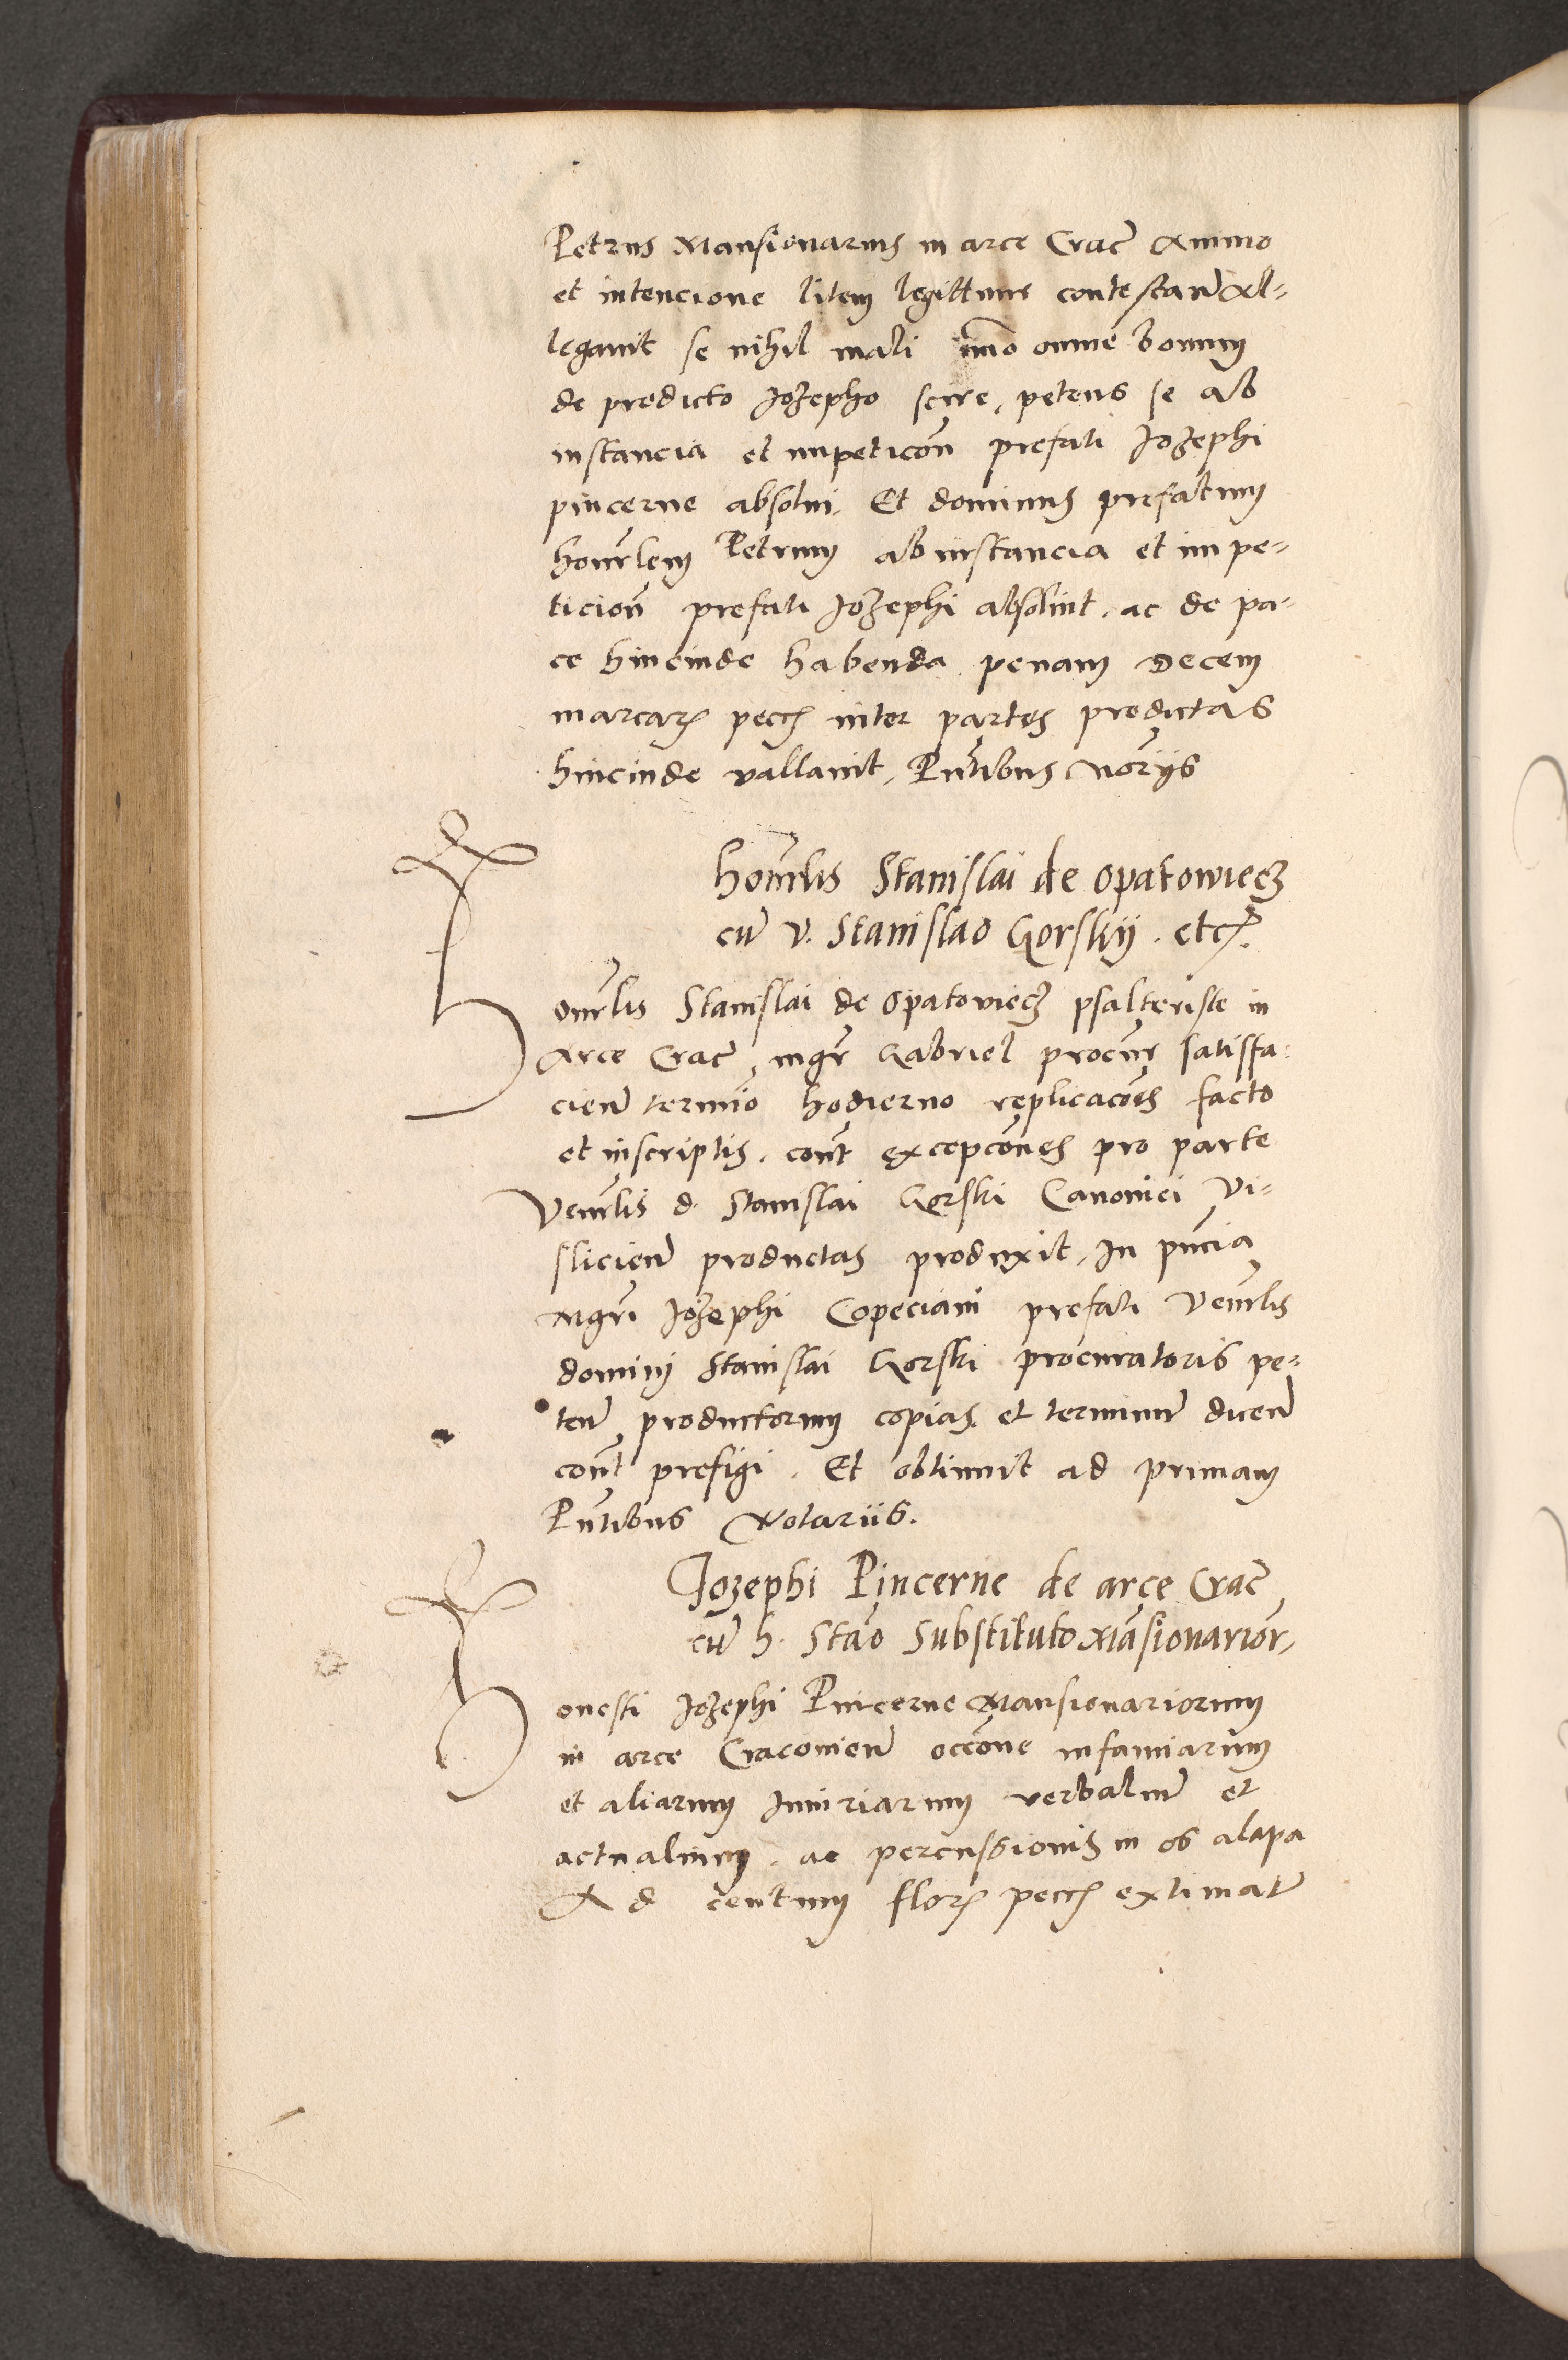 Petrus Mansionarius in arce Crac̄ Animo
et intencione litem legittime contestan̄ Al-
legavit se nihil mali im̄o omne bonum
de predicto Jozepho scire, petens se ab
instancia et impeticōn prefati Jozephi
pincerne absolui. Et dominus prefatum
honrłem Petrum ab instancia et impe-
ticion̄ prefati Jozephi absoluit. ac de pa-
ce hincinde habenda penam Decem
marcarꝝ pecc̄ inter partes predictas
hincinde vallauit, Pn̄tibus Nōrijs
Honrłis Stanislai de Opatowiecz
cū V. Stanislao Gorskij. etc.
Honrłis Stanislai de Opatoviecz psalteriste in
Arce Crac̄ mgr̄ Gabriel procur̄ satisfa-
cien̄ termīo hodierno replicacōēs facto
et inscriptis. cont̄ excepcōnes pro parte
Venrłis d. Stanislai Gorski Canonici Vi-
slicien̄ productas produxit, In pn̄cia
Mgrī Jozephi Copeciani prefati Venrłis
domini Stanislai Gorski procuratoris pe-
ten̄ productorum copias et terminū dicen̄
cont̄ prefigi. Et obtinuit ad primam
Pn̄tibus Notariis.
Jozephi Pincerne de arce Crac̄
cū h. Stāo Substituto Māsionarior̄
Honesti Jozephi Pincerne Mansionariorum
in arce Cracouien̄ occōne infamiarum
et aliarum Iniuriarum verbaliū et
actualium, ac percussionis in os alapa
Ad centum florꝝ pecc̄ extimat̄